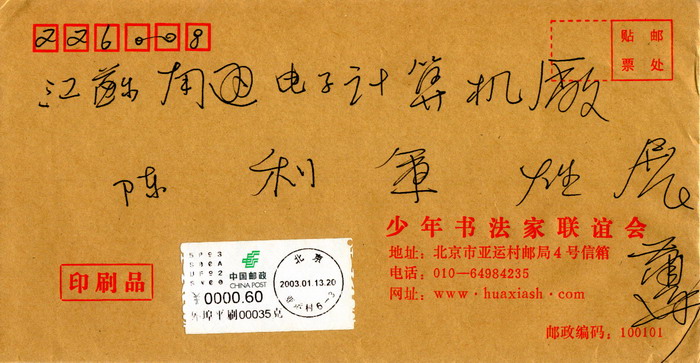 226008
贴邮
票处
江苏南通电子计算机厂
陈利军
展
少年书法家联谊会
地址:北京市亚运村邮局4号信箱
电话:010—64984235
网址:www·huaxiash·com
邮政编码:100101
印刷品
中国邮政
CHINA POST
0000.60
平刷00035克
北京
2003.01.13.20